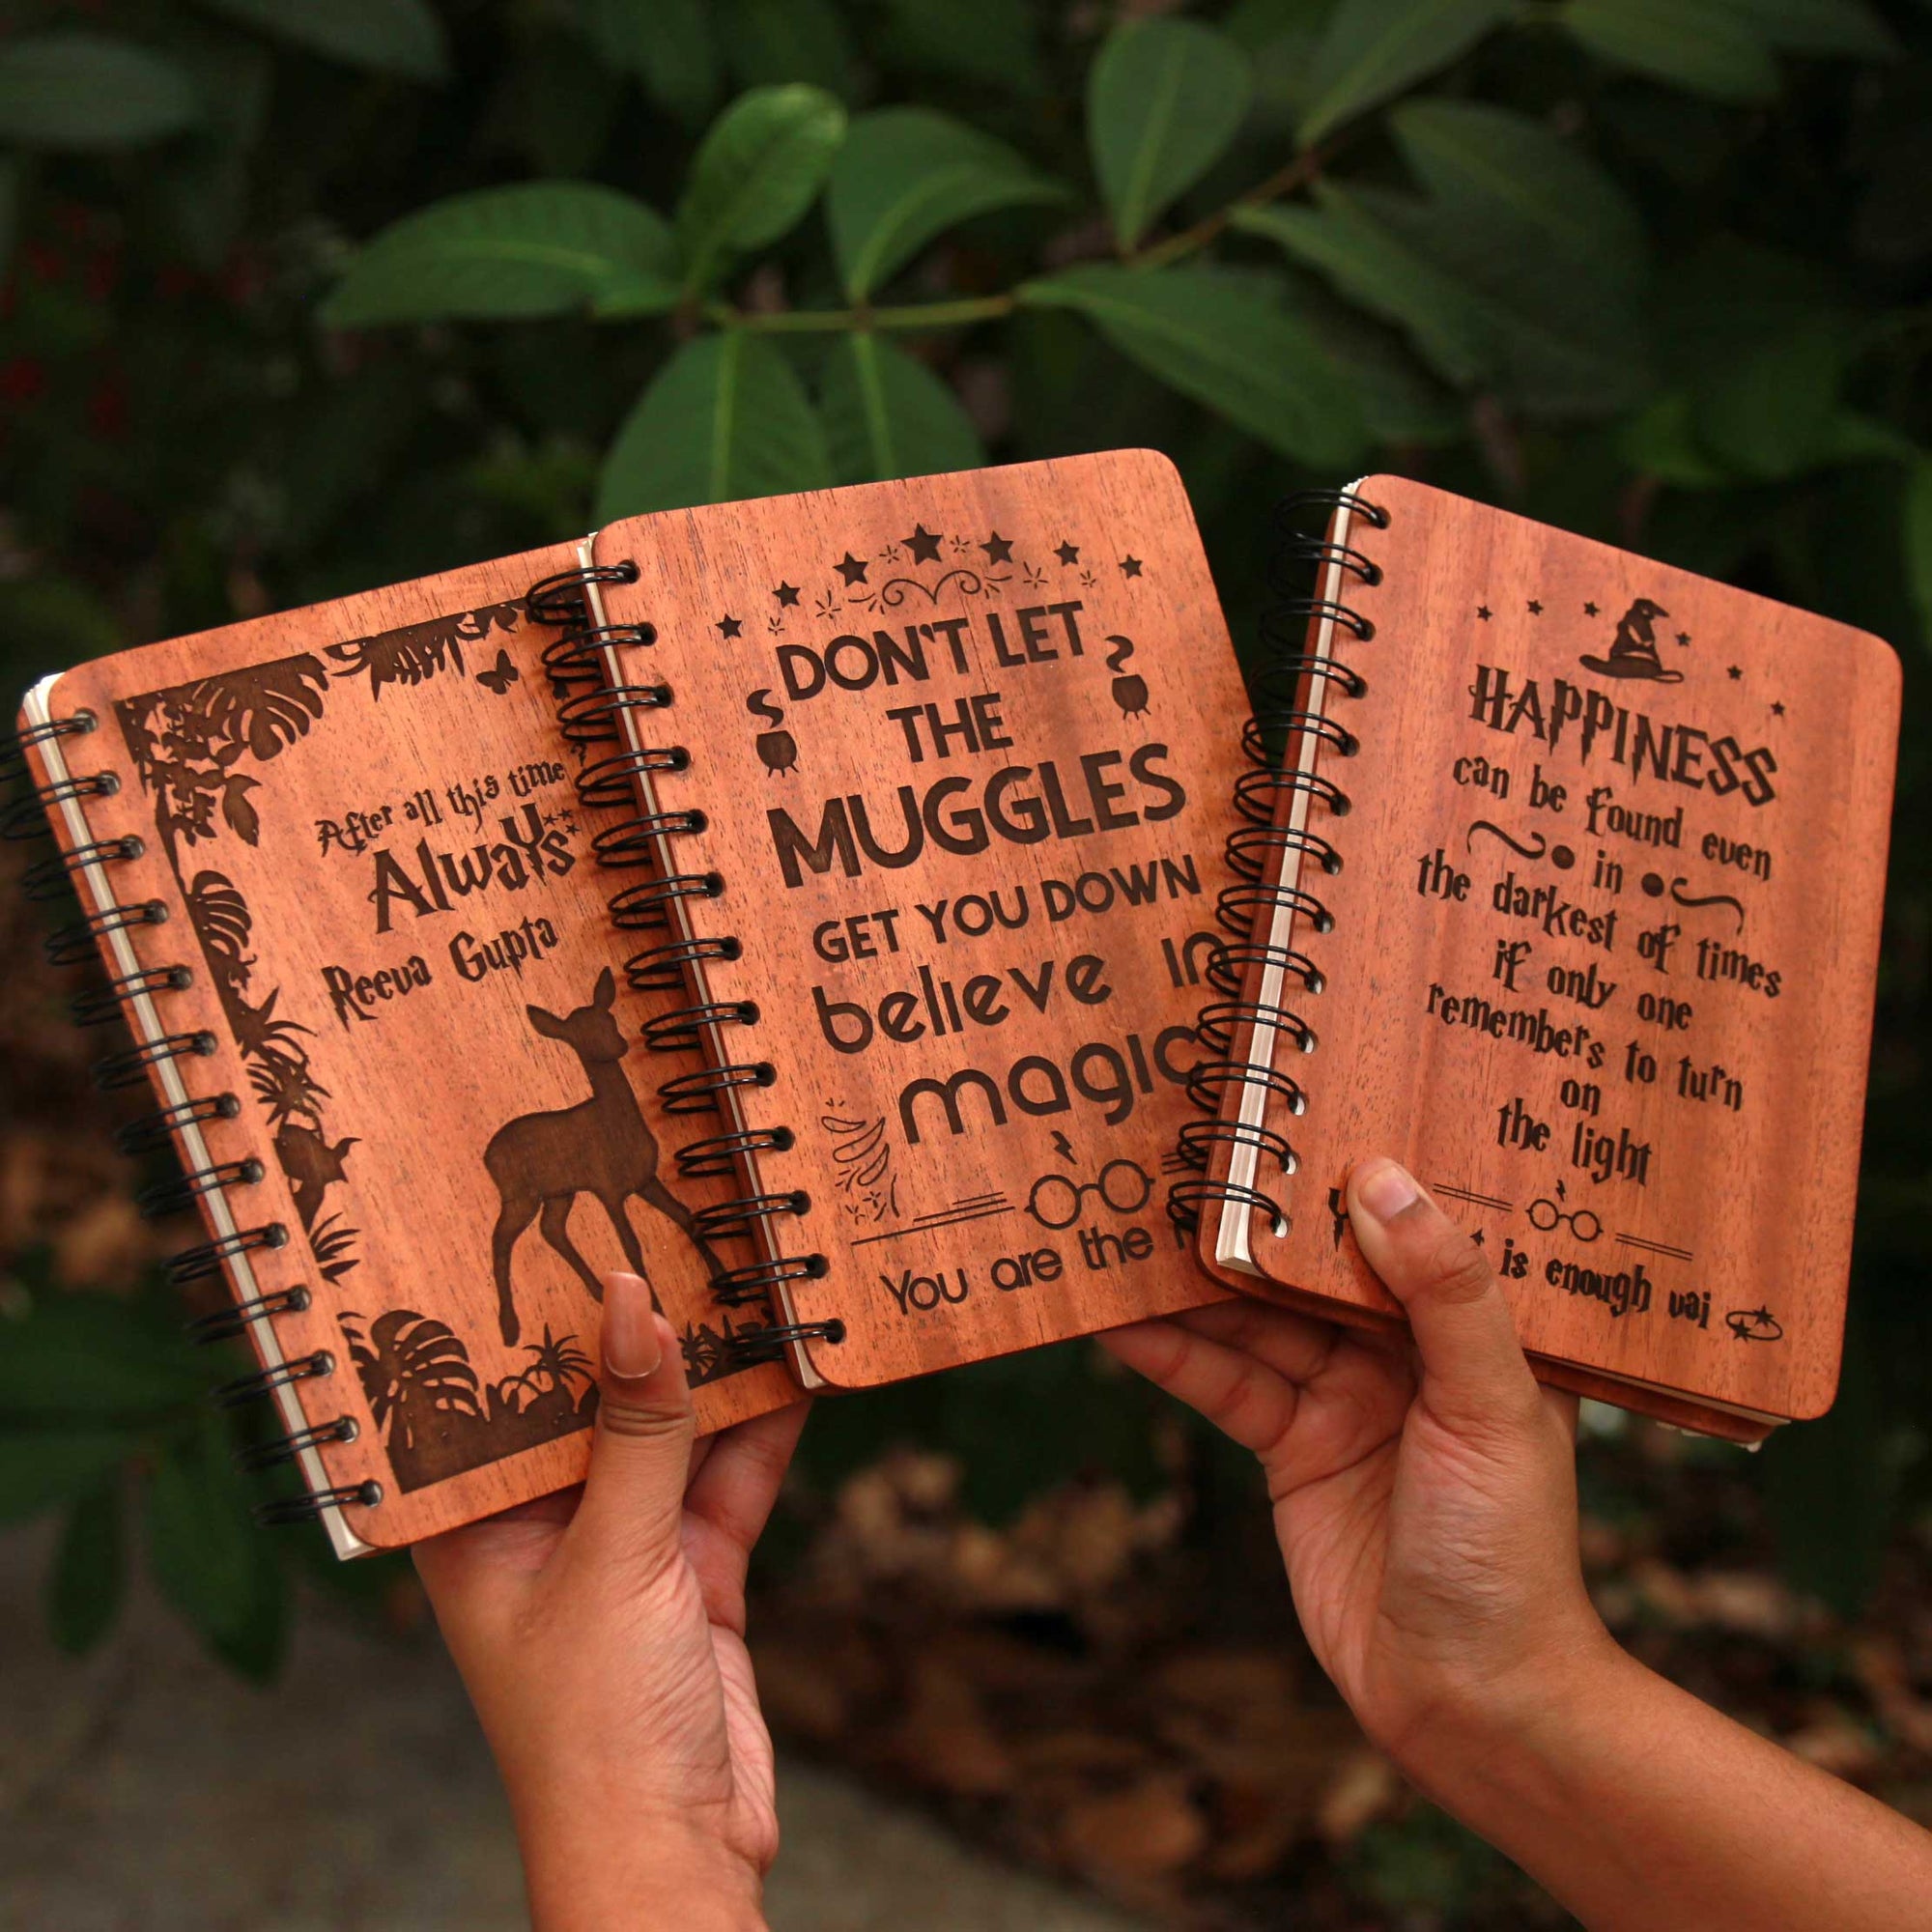 After all this time
Always
Reeva Gupta
DON'T LET
THE
MUGGLES
GET YOU DOWN
believe in
magic
You are the
HAPPINESS
can be found even
in
the darkest of times
if only one
remembers to turn
on
the light
is enough vai